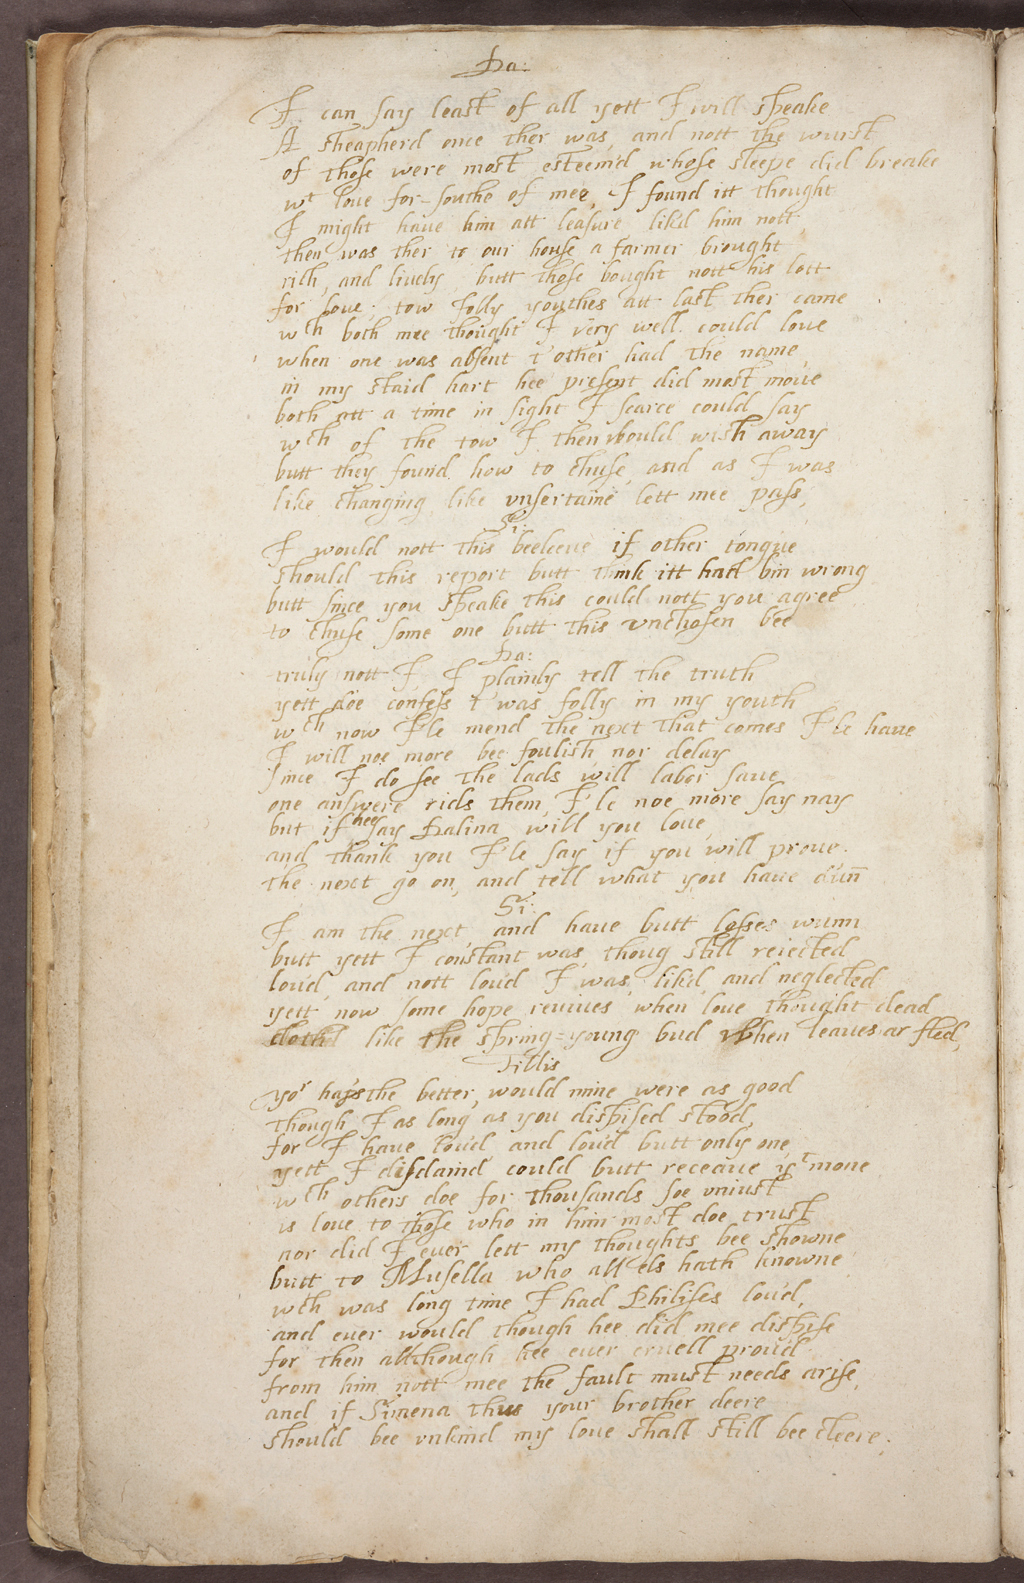 Da:
I can say least of all yett I will speake
A sheapherd once ther was, and nott the wurst
of those were most esteem'd whose sleepe did breake
wt love for-southe of mee, I found itt thought
I might have him att leasure, lik'd him nott,
then was ther to our house a farmer brought
rich, and lively, butt those bought nott his lott
for love; tow jolly youthes att last ther came
wch both mee thought I very well could love
when one was absent t'other had the name
in my staid hart hee present did most move
both att a time in sight I scarce could say
wch of the tow I then would wish away
butt they found how to chuse, and as I was
like changing, like unsertaine lett mee pass,
Si:
I would nott this beeleeve if other tongue
should this report butt think itt had bin wrong
butt since you speake this could nott you agree
to chuse some one butt this unchosen bee
Da:
truly nott I, I plainly tell the truth
yett doe confess t'was folly in my youth
wch now I'le mend the next that comes I'le have
I will noe more bee foulish nor delay
since I do see the lads will labor save
one answere rids them, I'le noe more say nay
but if hee say Dalina will you love
and thank you I'le say if you will prove.
the next go on, and tell what you have dunn
Si:
I am the next, and have butt losses wunn
butt yett I constant was, thoug still rejected
lov'd, and nott lov'd I was, lik'd, and neglected
yett now some hope revives, when love thought dead
doth like the spring=young bud when leaves ar fled,
Fillis
yor hap's the better, would mine were as good
though I as long as you dispised stood,
for I have lov'd, and lov'd butt only one
yett I disdain'd could butt receave yt mone
wch others doe for thousands soe unjust
is love to those who in him most doe trust
nor did I ever lett my thoughts bee showne
butt to Musella who all els hath knowne
wch was long time I had Philises lov'd,
and ever would though hee did mee dispise
for then although hee ever cruell prov'd
from him nott mee the fault must needs arise,
and if Simena thus your brother deere
should bee unkind my love shall still bee cleere;